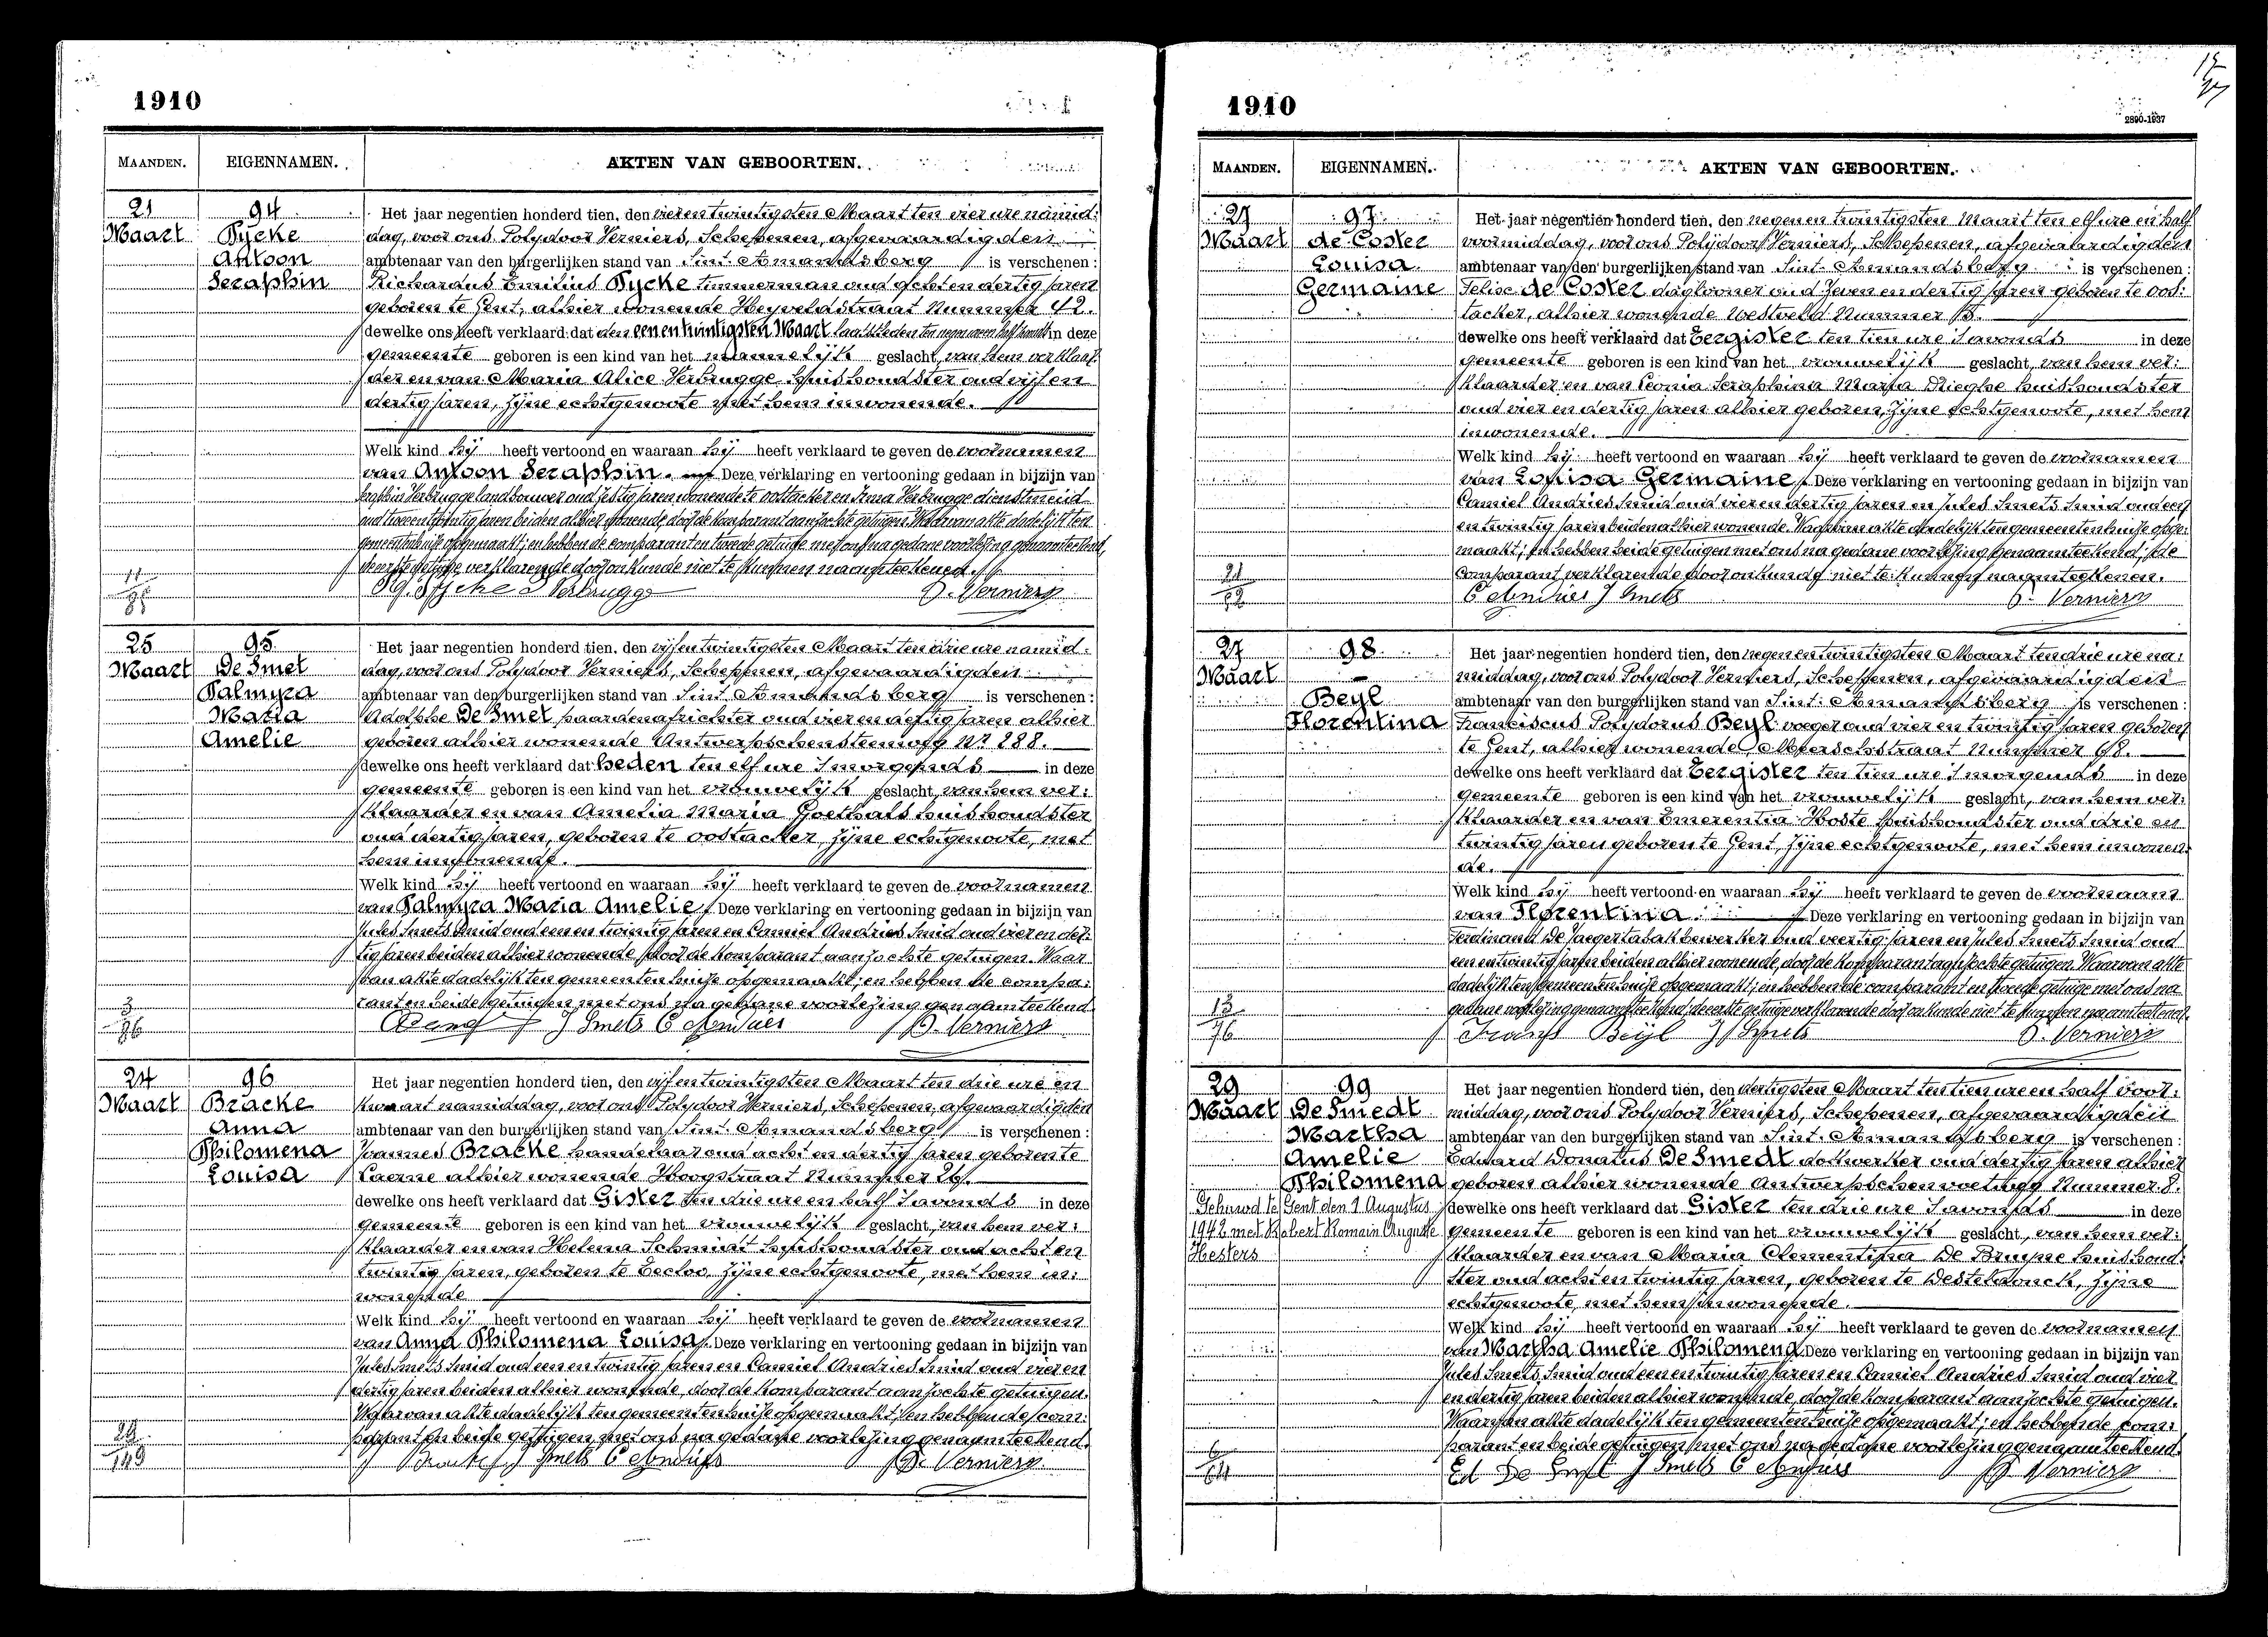 1910
MAANDEN. EIGENNAMEN. AKTEN VAN GEBOORTEN.
21 94
Maart Pycke
Antoon
Seraphin
Het jaar negentien honderd tien, den vier en twintigsten Maart ten vier ure namid:
dag, voor ons Polydoor Verniers, Schepenen, afgevaardigden
ambtenaar van den burgerlijken stand van Sint-Amandsberg is verschenen:
Richardus Emilius Pycke timmerman oud acht en dertig jaren
geboren te Gent, alhier wonende Heyveldstraat Nummer 42.
dewelke ons heeft verklaard dat den een en twintigsten Maart laatstleden ten negen uren half in deze
gemeente geboren is een kind van het mannelijk geslacht, van hem verklaar
der en van Maria Alice Verbrugge huishoudster oud vijf en
dertig jaren, zijne echtgenoote met hem inwonende.
Welk kind hij heeft vertoond en waaraan hij heeft verklaard te geven de voornamen
van Antoon Seraphin. Deze verklaring en vertooning gedaan in bijzijn van
Seraphin Verbrugge landbouwer oud zestig jaren wonende te Oostacker en Irma Verbrugge dienstmeid
oud twee en twintig jaren beiden alhier wonende door de komparant aanzochte getuigen. Waarvan akte dadelijk ten
gemeentenhuize opgemaakt; en hebben de comparant en tweede getuige met ons na gedane voorlezing genaamteekend,
de eerste getuige verklarende door onkunde niet te kunnen naamteekenen.
R. Pycke I Verbrugge P. Verniers
11
85
25 95
Maart De Smet
Palmyra
Maria
Amelie
Het jaar negentien honderd tien, den vijf en twintigsten Maart ten drie ure namid:
dag, voor ons Polydoor Verniers, Schepenen, afgevaardigden
ambtenaar van den burgerlijken stand van Sint Amandsberg is verschenen:
Adolphe De Smet paardenafrichter oud vier en dertig jaren alhier
geboren alhier wonende Antwerpschensteenweg Nr 288.
dewelke ons heeft verklaard dat heden ten elf ure 's morgends in deze
gemeente geboren is een kind van het vrouwelijk geslacht, van hem ver:
klaarder en van Amelia Maria Goethals huishoudster
oud dertig jaren, geboren te Oostacker, zijne echtgenoote, met
hem inwonende.
Welk kind hij heeft vertoond en waaraan hij heeft verklaard te geven de voornamen
van Palmyra Maria Amelie. Deze verklaring en vertooning gedaan in bijzijn van
Jules Smets smid oud een en twintig jaren en Camiel Andries smid oud vier en der:
tig jaren beiden alhier wonende door de komparant aanzochte getuigen. Waar
van akte dadelijk ten gemeentenhuize opgemaakt; en hebben de compa:
rant en beide getuigen met ons na gedane voorlezing genaamteekend.
J Smets C Andries P. Verniers
3
86
24 96
Maart Bracke
Anna
Philomena
Louisa
Het jaar negentien honderd tien, den vijf en twintigsten Maart ten drie ure en
kwaart namiddag, voor ons Polydoor Verniers, Schepenen, afgevaardigden
ambtenaar van den burgerlijken stand van Sint Amandsberg is verschenen:
Joannes Bracke handelaar oud acht en dertig jaren geboren te
Laerne alhier wonende Hoogstraat Nummer 26.
dewelke ons heeft verklaard dat Gister ten drie ure en half 's avonds in deze
gemeente geboren is een kind van het vrouwelijk geslacht, van hem ver:
klaarder en van Helena Schmidt huishoudster oud acht en
twintig jaren, geboren te Eecloo, zijne echtgenoote, met hem in:
wonende
Welk kind hij heeft vertoond en waaraan hij heeft verklaard te geven de voornamen
van Anna Philomena Louisa. Deze verklaring en vertooning gedaan in bijzijn van
Jules Smets smid oud een en twintig jaren en Camiel Andries smid oud vier en
dertig jaren beiden alhier wonende, door de komparant aanzochte getuigen.
Waarvan akte dadelijk ten gemeentenhuize opgemaakt; en hebben de com:
parant en beide getuigen, met ons na gedane voorlezing genaamteekend.
Bracke J Smets C Andries P. Verniers
149
1910
2890-1937
MAANDEN. EIGENNAMEN. AKTEN VAN GEBOORTEN.
27 97
Maart de Coster
Louisa
Germaine
Het jaar negentien honderd tien, den negen en twintigsten Maart ten elf ure en half
voormiddag, voor ons Polydoor Verniers, Schepenen, afgevaardigden
ambtenaar van den burgerlijken stand van Sint-Amandsberg is verschenen:
Felise de Coster daglooner oud zeven en dertig jaren geboren te Oos:
tacker, alhier wonende Westveld Nummer 13.
dewelke ons heeft verklaard dat Eergister ten tien ure 's avonds in deze
gemeente geboren is een kind van het vrouwelijk geslacht, van hem ver:
klaarder en van Leonia Seraphina Maria Drieghe huishoudster
oud vier en dertig jaren alhier geboren, zijne echtgenoote, met hem
inwonende.
Welk kind hij heeft vertoond en waaraan hij heeft verklaard te geven de voornamen
van Louisa Germaine. Deze verklaring en vertooning gedaan in bijzijn van
Camiel Andries smid oud vier en dertig jaren en Jules Smets smid oud een
en twintig jaren beiden alhier wonende. Waarvan akte dadelijk ten gemeentenhuize opge:
maakt; en hebben beide getuigen met ons na gedane voorlezing genaamteekend; de
comparant verklarende door onkunde niet te kunnen naamteekenen.
C Andries J Smets P. Verniers
21
27 98
Maart
Beyl
Florentina
Het jaar negentien honderd tien, den negen en twintigsten Maart ten drie ure na:
middag, voor ons Polydoor Verniers, Schepenen, afgevaardigden
ambtenaar van den burgerlijken stand van Sint-Amandsberg is verschenen:
Franciscus Polydorus Beyl voeger oud vier en twintig jaren geboren
te Gent, alhier wonende Meerschstraat Nummer 68.
dewelke ons heeft verklaard dat Eergister ten tien ure 's morgends in deze
gemeente geboren is een kind van het vrouwelijk geslacht, van hem ver:
klaarder en van Emerentia Hoste huishoudster oud drie en
twintig jaren geboren te Gent, zijne echtgenoote, met hem inwonen:
de.
Welk kind hij heeft vertoond en waaraan hij heeft verklaard te geven de voornaam
van Florentina. Deze verklaring en vertooning gedaan in bijzijn van
Ferdinand De Jaeger tabakbewerker oud veertig jaren en Jules Smets smid oud
een en twintig jaren beiden alhier wonende, door de komparant aanzochte getuigen. Waarvan akte
dadelijk ten gemeentenhuize opgemaakt; en hebben de comparant en tweede getuige met ons na
gedane voorlezing genaamteekend; de eerste getuige verklarende door onkunde niet te kunnen naamteekend.
Frans Beyl J Smets P. Verniers
13
76
29 99
Maart De Smedt
Martha
Amelie
Philomena
Gehuwd te Gent den 1 Augustus
1942 met Robert Romain Auguste
Hesters
Het jaar negentien honderd tien, den dertigsten Maart ten tien ure en half voor:
middag, voor ons Polydoor Verniers, Schepenen, afgevaardigden
ambtenaar van den burgerlijken stand van Sint-Amandsberg is verschenen:
Eduard Donatus De Smedt dokwerker oud dertig jaren alhier
geboren alhier wonende Antwerpschen voetweg Nummer 8.
dewelke ons heeft verklaard dat Gister ten drie ure 's avonds in deze
gemeente geboren is een kind van het vrouwelijk geslacht, van hem ver:
klaarder en van Maria Clementina De Bruyne huishoud:
ster oud acht en twintig jaren, geboren te Desteldonck, zijne
echtgenoote, met hem inwonende.
Welk kind hij heeft vertoond en waaraan hij heeft verklaard te geven de voornamen
van Martha Amelie Philomena. Deze verklaring en vertooning gedaan in bijzijn van
Jules Smets, smid oud een en twintig jaren en Camiel Andries smid oud vier
en dertig jaren beiden alhier wonende, door de komparant aanzochte getuigen.
Waarvan akte dadelijk ten gemeentenhuize opgemaakt; en hebben de com:
parant en beide getuigen met ons na gedane voorlezing genaamteekend.
Ed De Smet J Smets C Andries P. Verniers
6
64